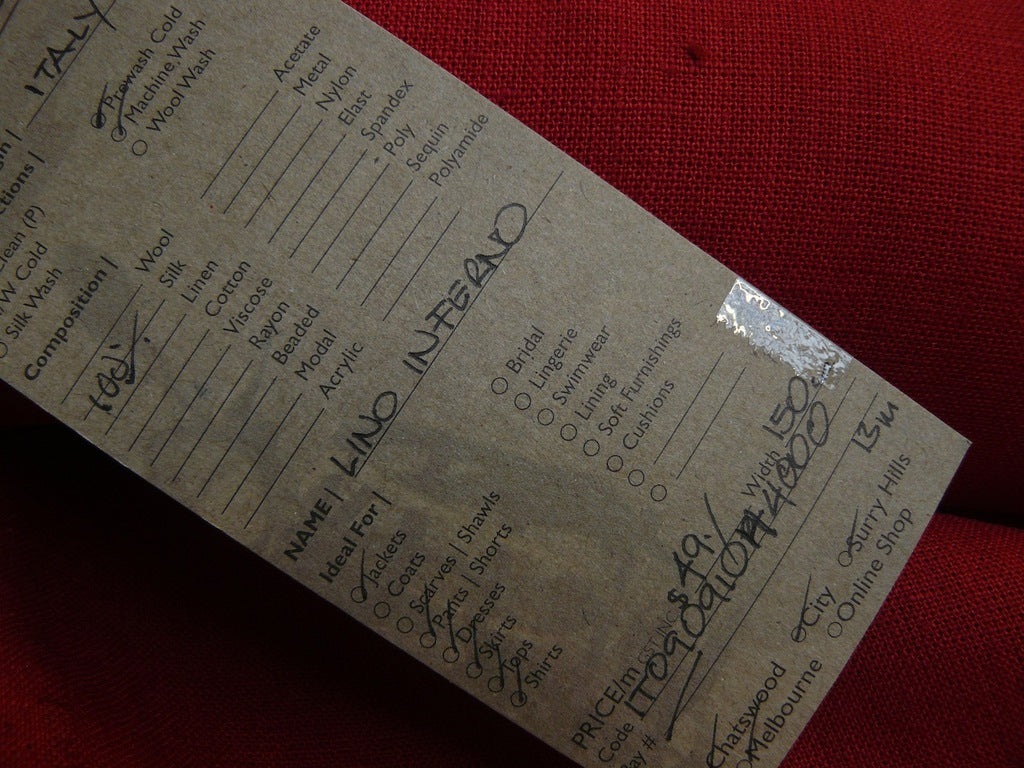 ITALY
Prewash Cold
Machine Wash
Wool Wash
(P)
Cold
Silk Wash
Composition |
Wool
Silk
100% Linen
Cotton
Viscose
Rayon
Beaded
Modal
Acrylic
Acetate
Metal
Nylon
Elast
Spandex
Poly
Sequin
Polyamide
NAME | LINO INFERNO
Ideal For |
Jackets
Coats
Scarves | Shawls
Pants | Shorts
Dresses
Skirts
Tops
Shirts
Bridal
Lingerie
Swimwear
Lining
Soft Furnishings
Cushions
PRICE/m $49. Width 150
Code
13m
Chatswood
City
Surry Hills
Melbourne
Online Shop